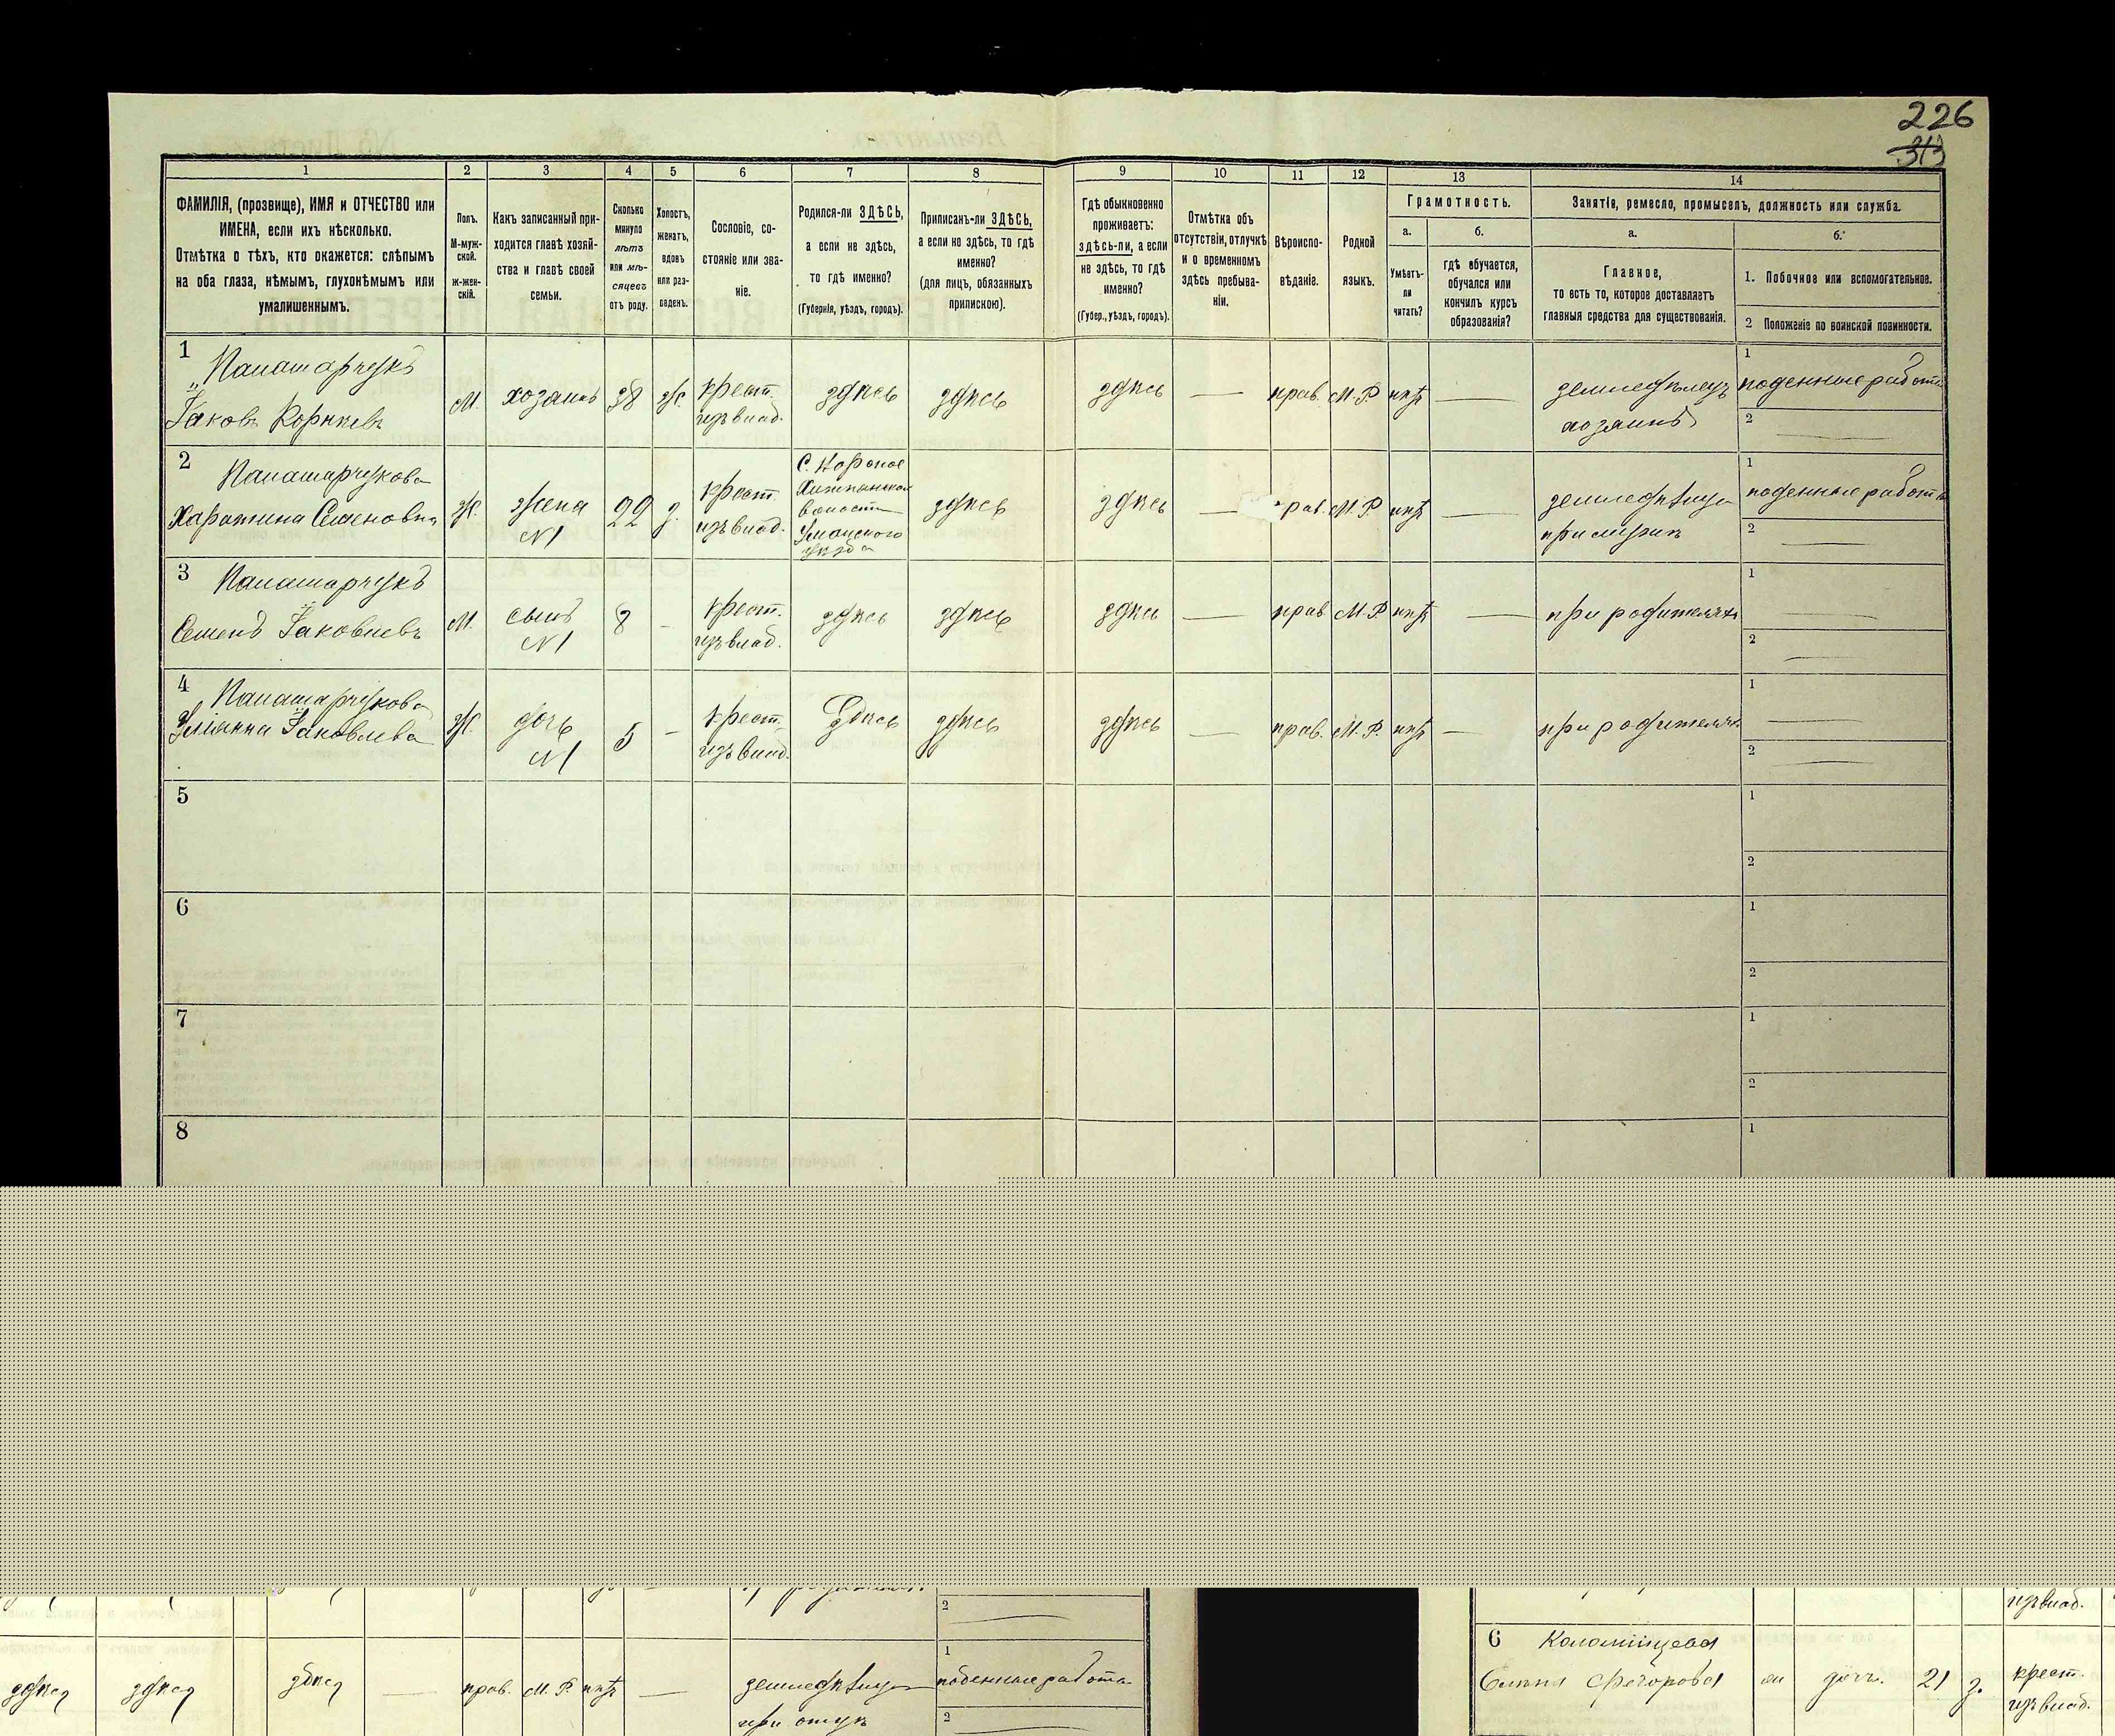 226
313
1
2
3
4
5
6
7
8
9
10
11
12
13
14
ФАМИЛІЯ, (прозвище), ИМЯ и ОТЧЕСТВО или
ИМЕНА, если ихъ нѣсколько.
Отмѣтка о тѣхъ, кто окажется: слѣпымъ
на оба глаза, нѣмымъ, глухонѣмымъ или
умалишеннымъ.
Полъ.
М-муж-
ской.
ж-жен-
скій.
Какъ записанный при-
ходится главѣ хозяй-
ства и главѣ своей
семьи.
Сколько
минуло
лѣтъ
или мѣ-
сяцевъ
отъ роду.
Холостъ,
женатъ,
вдовъ
или раз-
веденъ.
Сословіе, со-
стояніе или зва-
ніе.
Родился-ли ЗДѢСЬ,
а если не здѣсь,
то гдѣ именно?
(Губернія, уѣздъ, городъ).
Приписанъ-ли ЗДѢСЬ,
а если не здѣсь, то гдѣ
именно?
(для лицъ, обязанныхъ
припискою).
Гдѣ обыкновенно
проживаетъ:
здѣсь-ли, а если
не здѣсь, то гдѣ
именно?
(Губер., уѣздъ, городъ).
Отмѣтка объ
отсутствіи, отлучкѣ
и о временномъ
здѣсь пребыва-
ніи.
Вѣроиспо-
вѣданіе.
Родной
языкъ.
Грамотность.
а.
Умѣетъ-
ли
читать?
б.
гдѣ обучается,
обучался или
кончилъ курсъ
образованія?
Занятіе, ремесло, промыселъ, должность или служба.
а.
Главное,
то есть то, которое доставляетъ
главныя средства для существованія.
б.
1. Побочное или вспомогательное.
2 Положеніе по воинской повинности.
1
Іаковъ Корнѣевъ
М.
хозяинъ
38
ж.
крест.
изъ влад.
здѣсь
здѣсь
здѣсь
прав.
М.Р.
нѣтъ
земледѣлецъ
хозяинъ
1
поденные работы
2
2
Семеновна
Ж.
жена
N1
з.
крест.
изъ влад.
волости
Уманского
уѣзда
здѣсь
здѣсь
прав.
М.Р.
нѣтъ
при мужѣ
1
поденные работы
2
3
Семенъ Іаковлевъ
М.
сынъ
N1
8
крест.
изъ влад.
здѣсь
здѣсь
здѣсь
прав
М.Р.
нѣтъ
при родителяхъ
1
2
4
Іаковлева
Ж.
дочь
N1
5
крест.
изъ влад.
Здѣсь
здѣсь
здѣсь
прав.
М.Р.
нѣтъ
при родителяхъ
1
2
5
1
2
6
1
2
7
1
2
8
1
2
изъ влад.
здѣсь
здѣсь
здѣсь
прав.
М.Р.
нѣтъ
при отцѣ
1
поденные работы
2
6
дочь.
21
з.
крест.
изъ влад.